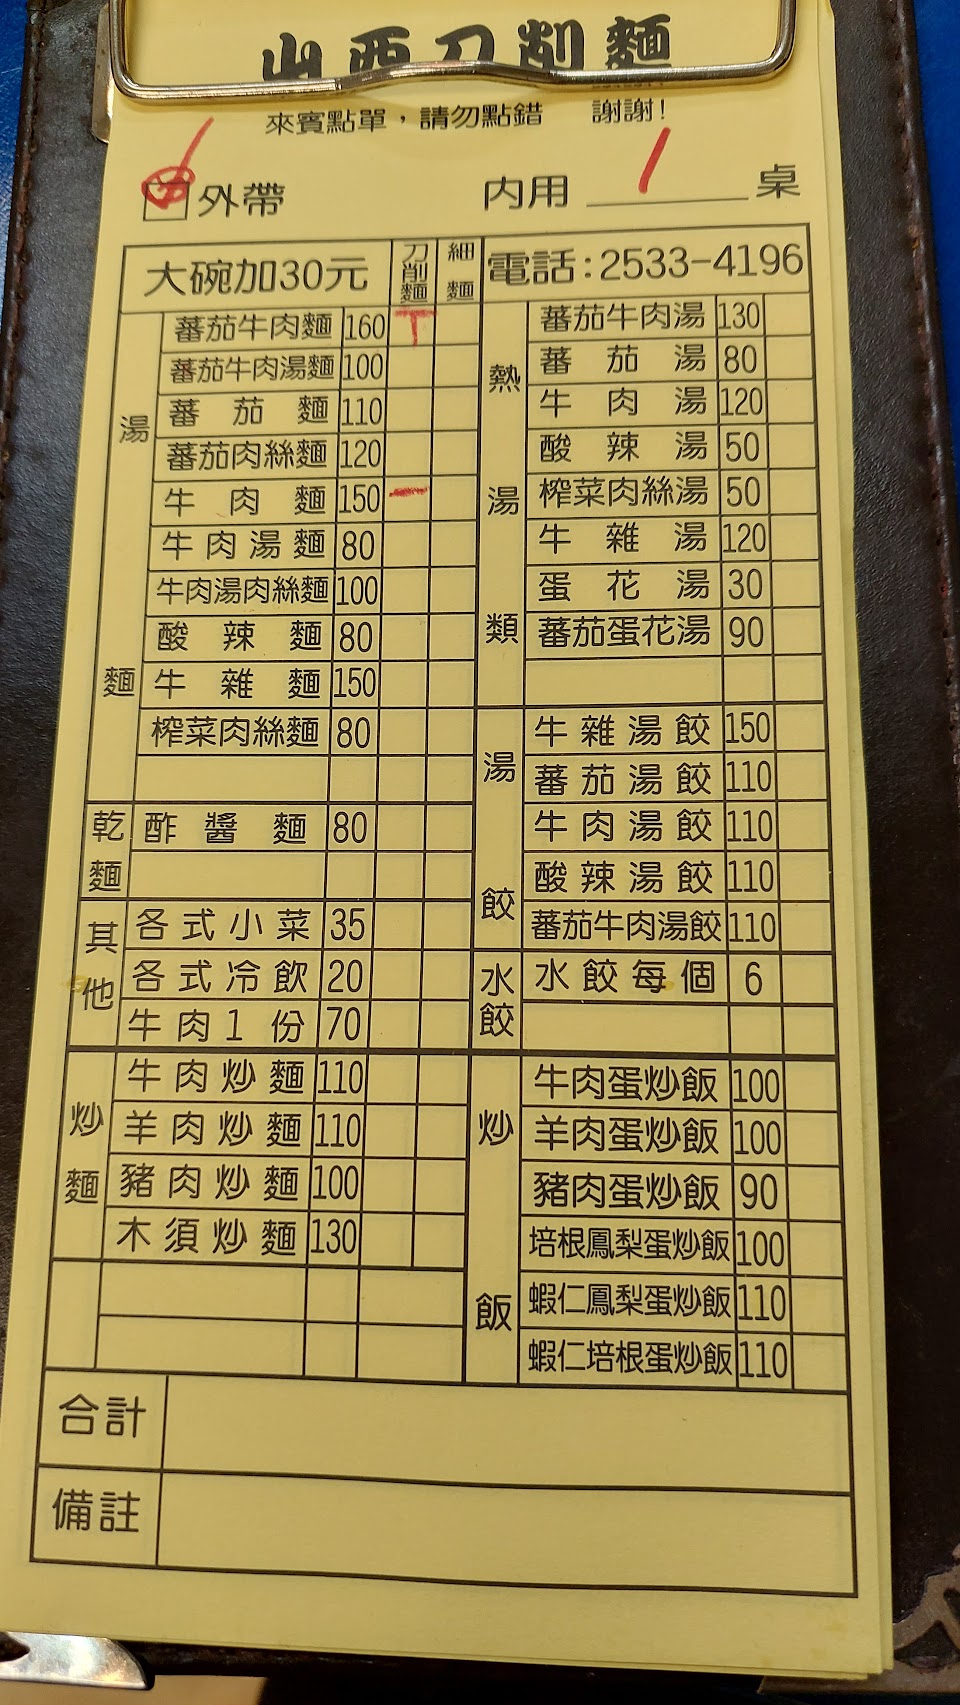 山西刀削麵
來賓點單，請勿點錯 謝謝！
外帶 內用 1 桌
大碗加30元 刀削麵 細麵 電話:2533-4196
湯麵
蕃茄牛肉麵 160 T
蕃茄牛肉湯麵 100
蕃茄麵 110
蕃茄肉絲麵 120
牛肉麵 150 一
牛肉湯麵 80
牛肉湯肉絲麵 100
酸辣麵 80
牛雜麵 150
榨菜肉絲麵 80
乾麵
酢醬麵 80
其他
各式小菜 35
各式冷飲 20
牛肉1份 70
炒麵
牛肉炒麵 110
羊肉炒麵 110
豬肉炒麵 100
木須炒麵 130
熱湯類
蕃茄牛肉湯 130
蕃茄湯 80
牛肉湯 120
酸辣湯 50
榨菜肉絲湯 50
牛雜湯 120
蛋花湯 30
蕃茄蛋花湯 90
湯餃
牛雜湯餃 150
蕃茄湯餃 110
牛肉湯餃 110
酸辣湯餃 110
蕃茄牛肉湯餃 110
水餃
水餃每個 6
炒飯
牛肉蛋炒飯 100
羊肉蛋炒飯 100
豬肉蛋炒飯 90
培根鳳梨蛋炒飯 100
蝦仁鳳梨蛋炒飯 110
蝦仁培根蛋炒飯 110
合計
備註